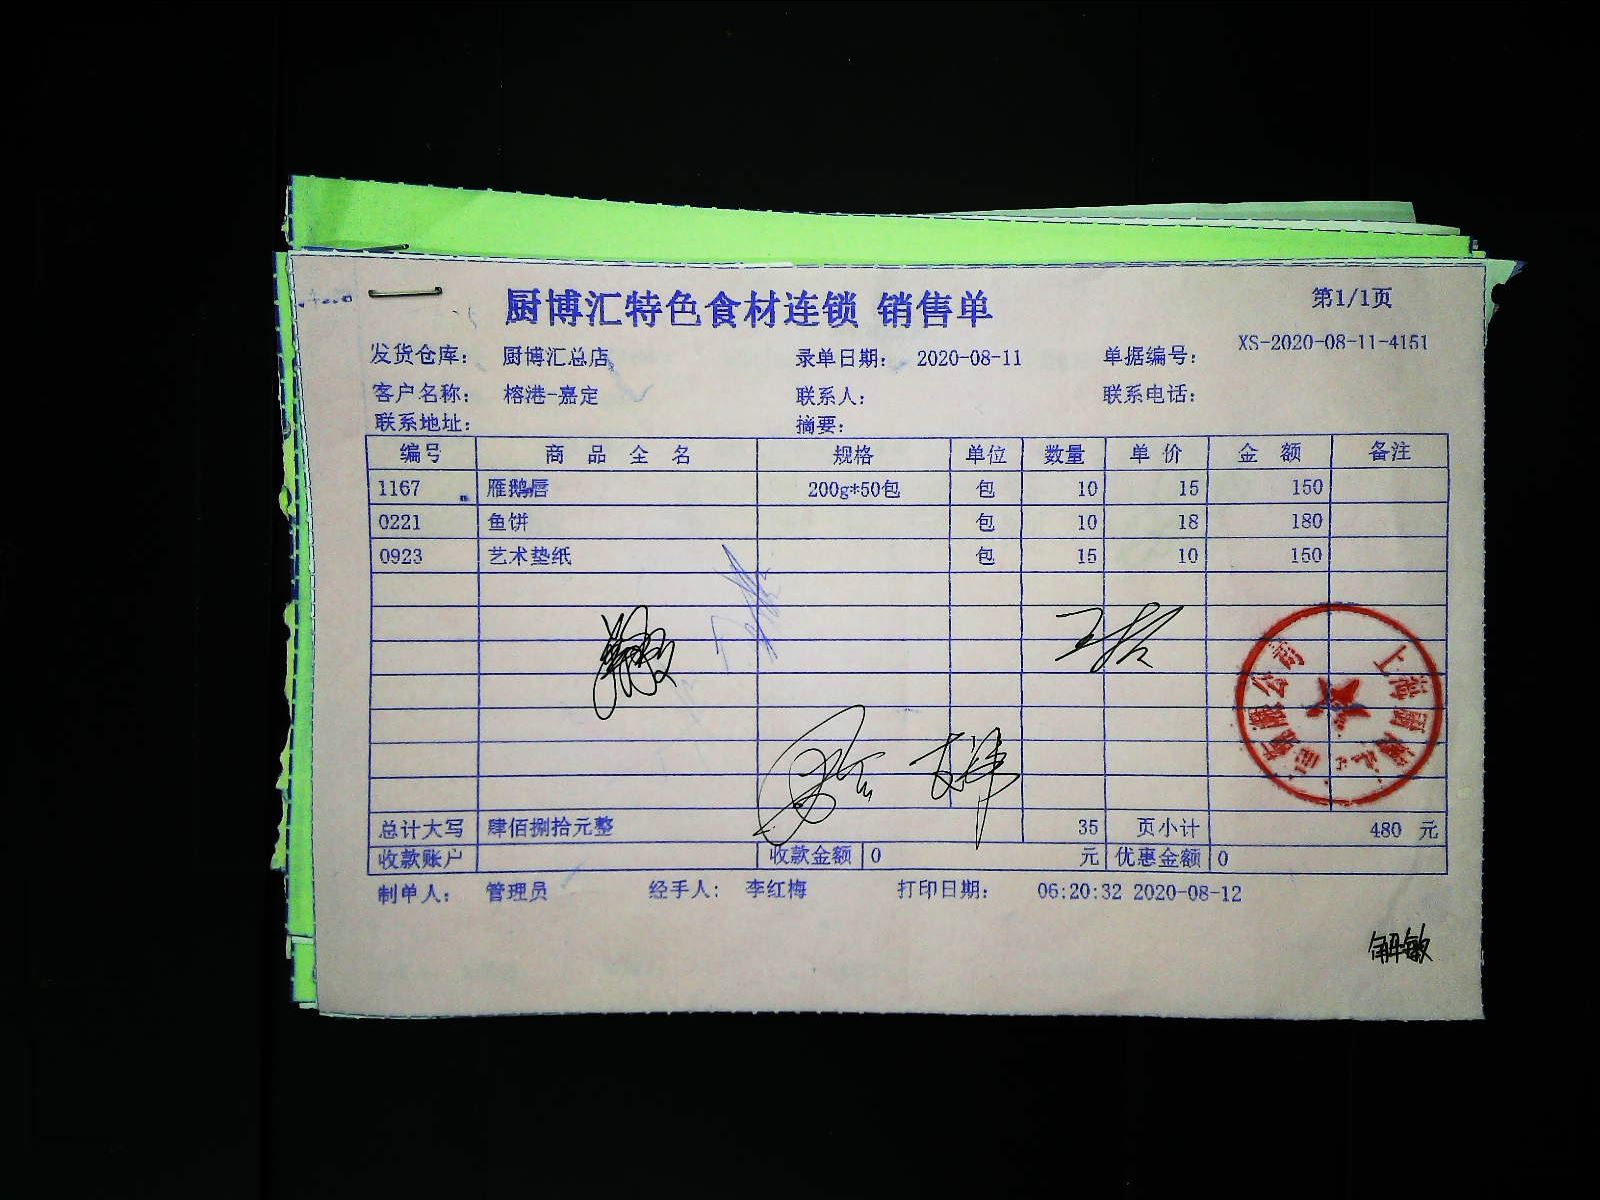 厨博汇特色食材连锁 销售单 第1/1页
发货仓库： 厨博汇总店 录单日期： 2020-08-11 单据编号： XS-2020-08-11-4151
客户名称： 榕港-嘉定 联系人： 联系电话：
联系地址： 摘要：
编号 商品全名 规格 单位 数量 单价 金额 备注
1167 雁鹅唇 200g*50包 包 10 15 150
0221 鱼饼 包 10 18 180
0923 艺术垫纸 包 15 10 150
总计大写 肆佰捌拾元整 35 页小计 480 元
收款账户 收款金额 0 元 优惠金额 0
制单人： 管理员 经手人： 李红梅 打印日期： 06:20:32 2020-08-12
解敏